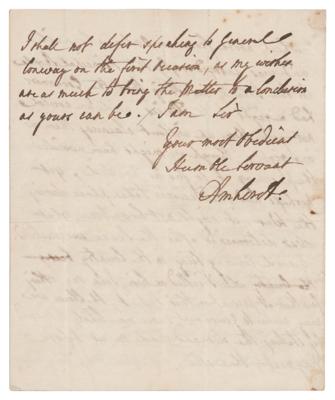 I shall not defer speaking to General
Conway on the first occasion, as my wishes
are as much to bring the Matter to a Conclusion
as yours can be. I am Sir
Your most Obedient
Humble Servant
Amherst.